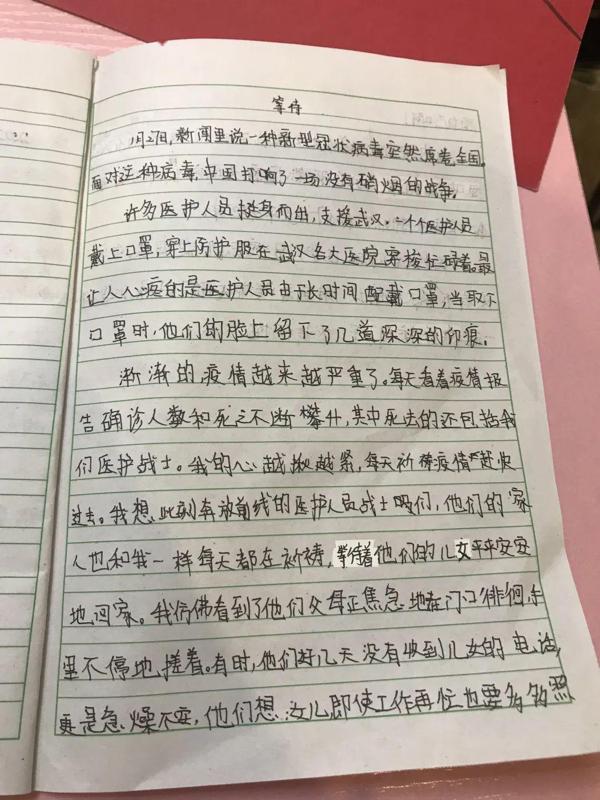 等待
1月27日,新闻里说一种新型冠状病毒突然席卷全国。
面对这种病毒,中国打响了一场没有硝烟的战争。
许多医护人员挺身而出,支援武汉。一个个医护人员
戴上口罩,穿上防护服在武汉各大医院穿梭忙碌着。最
让人心疼的是医护人员由于长时间配戴口罩,当取下
口罩时,他们的脸上留下了几道深深的印痕。
渐渐的疫情越来越严重了。每天看着疫情报
告确诊人数和死亡不断攀升,其中死去的还包括我
们医护战士。我的心越揪越紧,每天祈祷疫情赶快
过去。我想,此刻奔放前线的医护人员战士们,他们的家
人也和我一样每天都在祈祷,等待着他们的儿女平平安安
地回家。我仿佛看到了他们父母正焦急地在门口徘徊,手
里不停地搓着。有时,他们好几天没有收到儿女的电话,
更是急燥不安,他们想:女儿即使工作再忙也要多多照